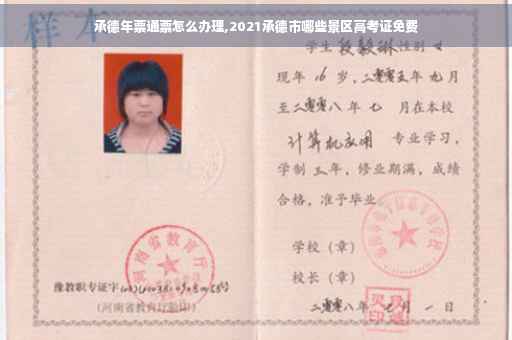 承德年票通票怎么办理,2021承德市哪些景区高考证免费
样本
学生段毅琳性别女
现年16岁,二零零五年九月
至二零零八年七月在本校
计算机应用 专业学习,
学制三年,修业期满,成绩
合格,准予毕业
学校(章)
校长(章)
河南省教育厅
豫教职专证字
(河南省教育厅验印)
二零零八年 月一日